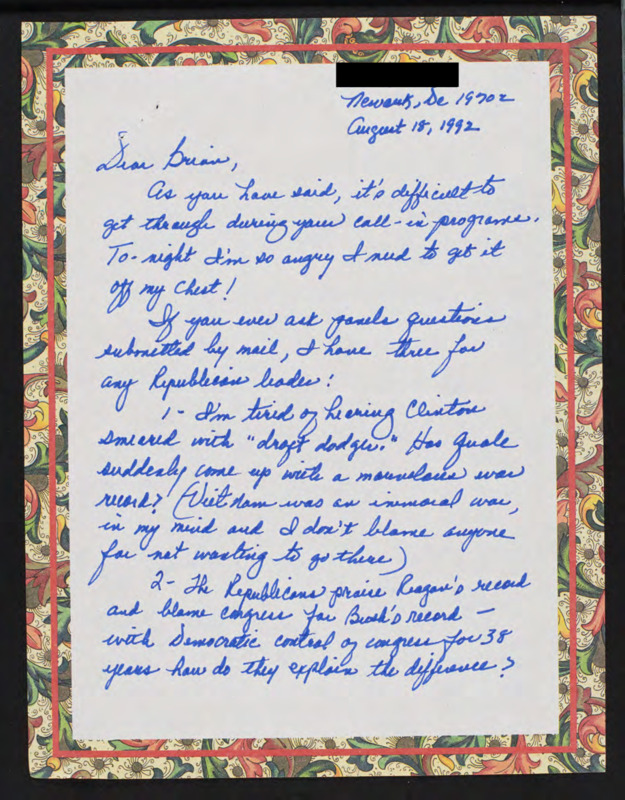 Newark, De 19702
August 18, 1992
Dear Brian,
As you have said, it's difficult to
get through during your call-in programs.
To-night I'm so angry I need to get it
off my chest!
If you ever ask panels questions
submitted by mail, I have three for
any Republican leader:
1- I'm tired of hearing Clinton
smeared with "draft dodger." Has Quale
suddenly come up with a marvelous war
record? (Viet Nam was an immoral war,
in my mind and I don't blame anyone
for not wanting to go there)
2- The Republicans praise Reagan's record
and blame congress for Bush's record —
with Democratic control of congress for 38
years how do they explain the difference?